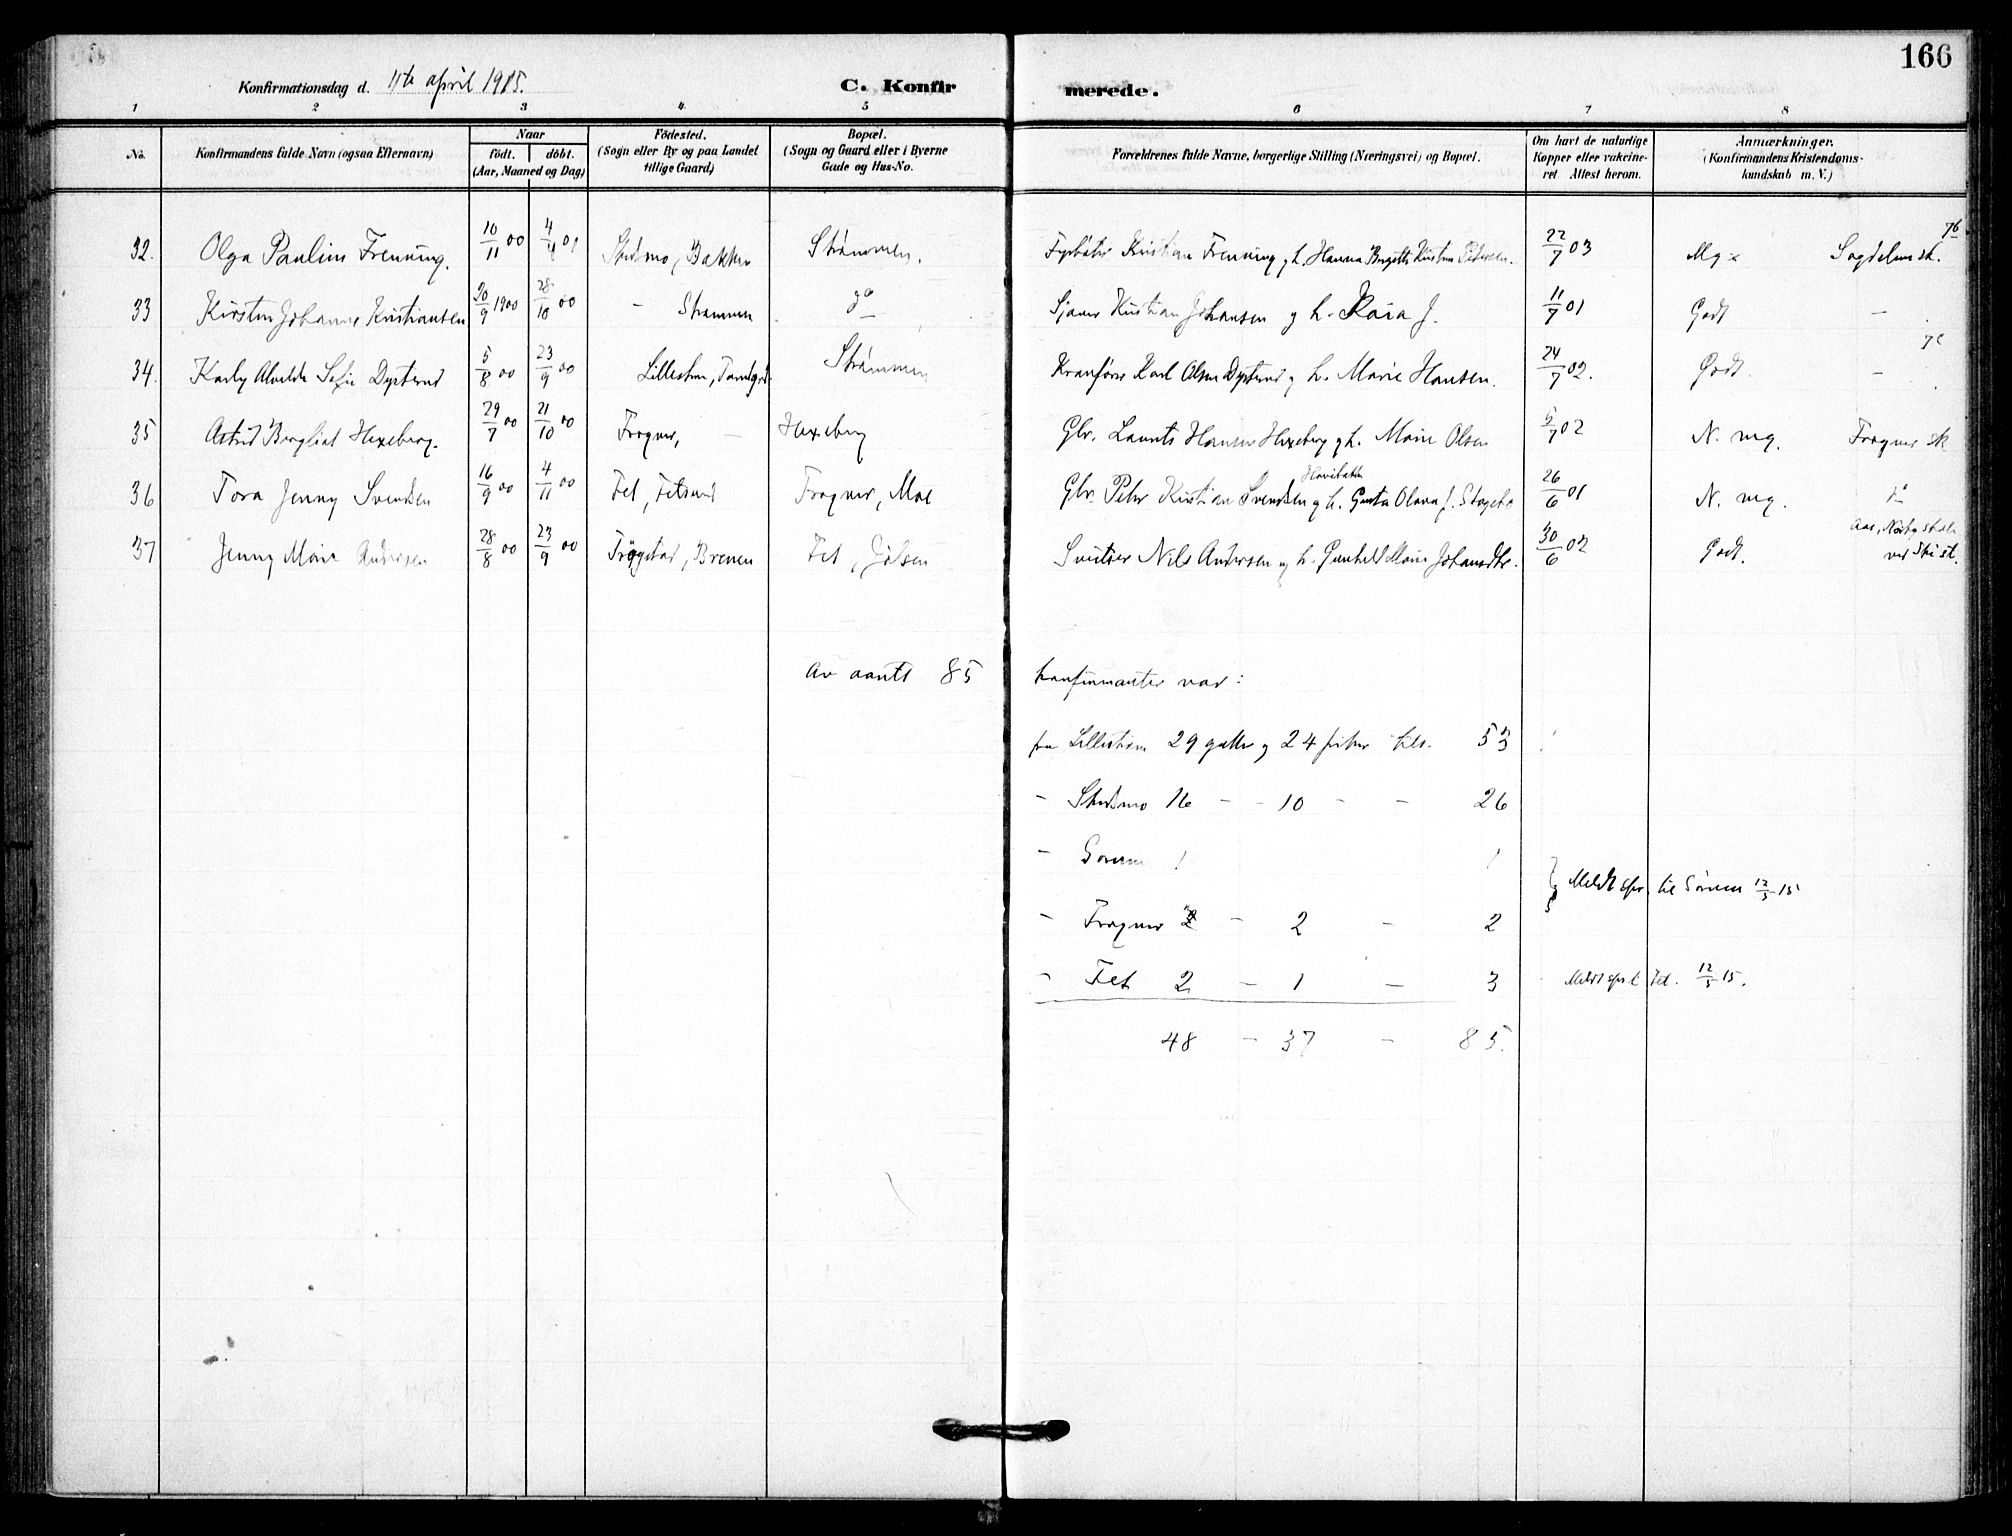 166
Konfirmationsdag d. 11te april 1915.
C. Konfirmerede.
1 2 3 4 5 6 7 8
No.
Konfirmandens fulde Navn (ogsaa Efternavn)
Naar
födt. döbt.
(Aar, Maaned og Dag)
Födested.
(Sogn eller By og paa Landet
tillige Gaard)
Bopæl.
(Sogn og Gaard eller i Byerne
Gade og Hus-No.
Forældrenes fulde Navne, borgerlige Stilling (Næringsvei) og Bopæl.
Om havt de naturlige
Kopper eller vakcine-
ret Attest herom.
Anmærkninger.
(Konfirmandens Kristendoms-
kundskab m. V.)
32. Olga Pauline Frenning. 10/11 00 4/4 01 Skedsmo, Bakken Strømmen. Fyrbøter Kristian Frenning og h. Hanna Birgitte Kirstine Petersen. 22/7 03 Mg x Sagdalens sk. 7b
33 Kirsten Johanne Kristiansen 20/9 1900 28/10 00 – Strømmen do Kristian Johansen og h. Kaia J. 11/7 01 Godt –
34. Karly Alvilde Sofie Dysterud 5/8 00 23/9 00 Lillestrøm, Strømmen Kranfører Karl Olsen Dysterud og h. Marie Hansen. 24/7 02. Godt. – 7c
35 Astrid Bergliot Hexeberg. 29/7 00 21/10 00 Frogner, – Hexeberg Gbr. Laurits Hansen Hexeberg og h. Marie Olsen 5/7 02 N. meg. Frogner sk
36 Tora Jenny Svendsen 16/9 00 4/11 00 Fet, Fetsund Frogner, Moe Gbr. Peter Kristian Svendsen og h. Gusta Olava J. 26/6 01 N. meg. do
37 Jenny Marie Andersen 28/8 00 23/9 00 Trøgstad, Brenen Fet, Jølsen Sveitser Nils Andersen og h. Gunhild Marie Johansdtr. 30/6 02 Godt. Aas, Nordby skole
ved Ski st.
Av antl 85 konfirmanter var:
fra Lillestrøm 29 gutter og 24 piker tils. 53
– Skedsmo 16 – 10 – – 26
– Sørum 1 1
Meldt spr. til Sørum 12/5 15
– Frogner – 2 – 2
– Fet 2 – 1 – 3 Meldt spr t. Fet. 12/5 15.
48 – 37 – 85.